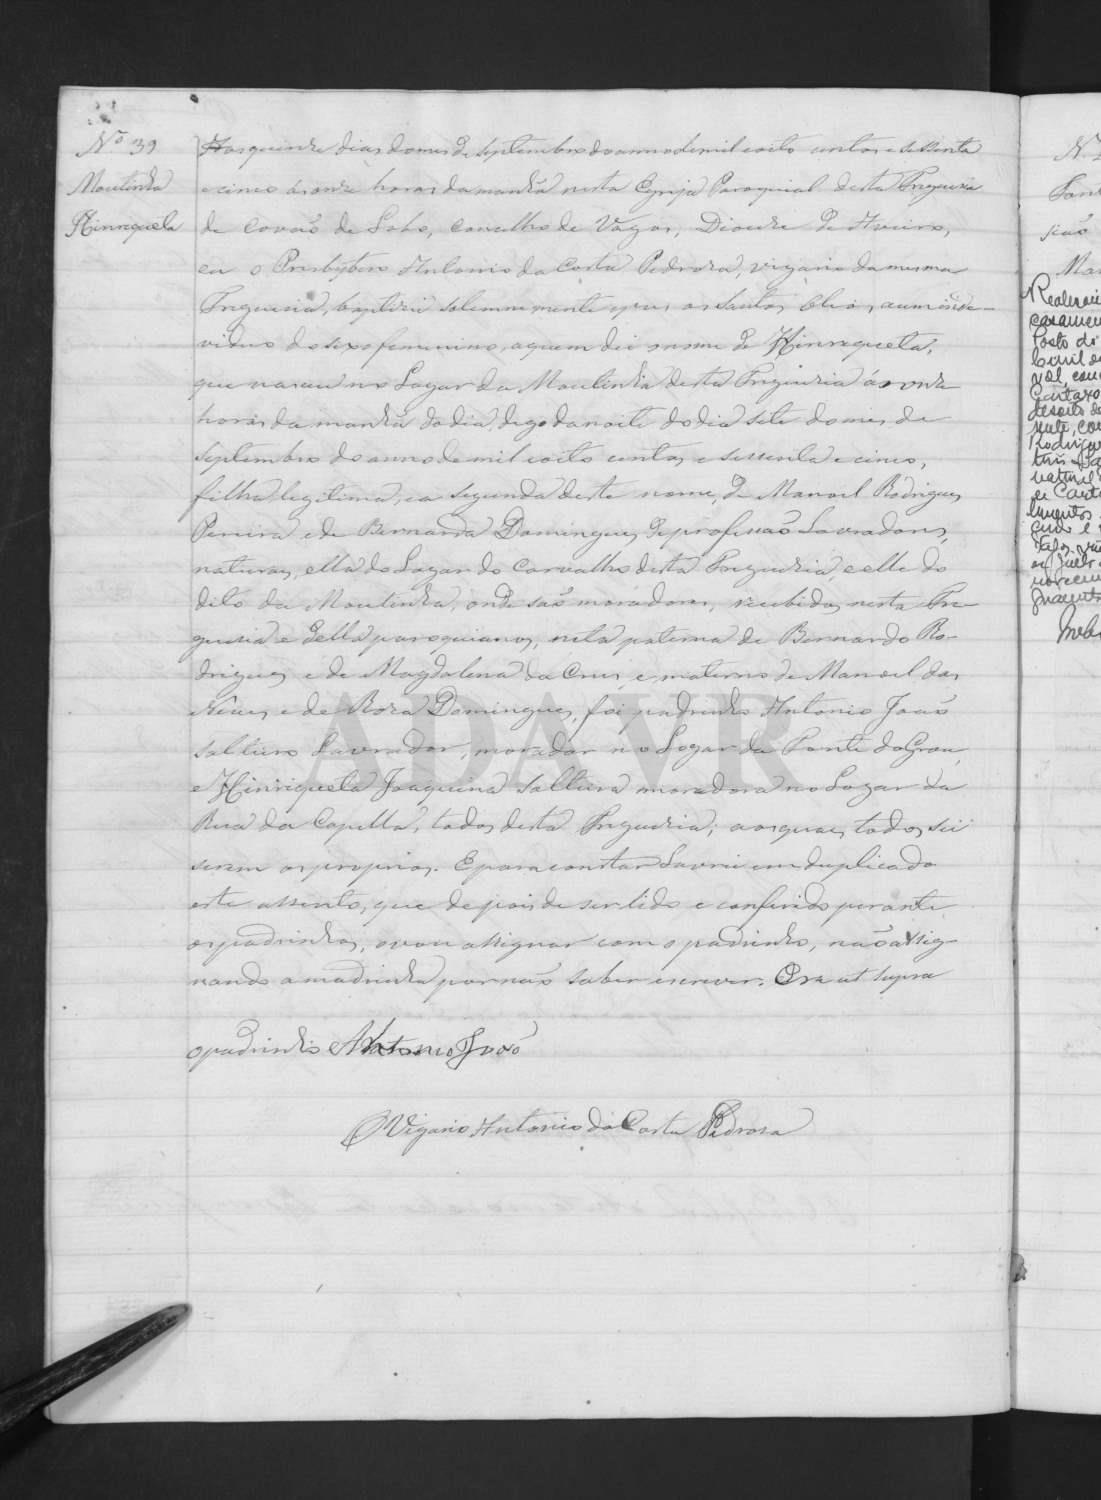 Nº 39
Moutinha
Hinriqueta
Aos quinze dias do mes de Septembro do anno de mil e oito centos e sessenta
e cinco ás onze horas da manhã nesta Egreja Paroquial desta Freguezia
de Covão de Lobo, Concelho de Vagos, Diocese de Aveiro,
eu o Presbytero Antonio da Costa Pedroza, vigario da mesma
Freguezia, baptizei solemnemente e pus os Santos Oleos, a um indi-
viduo do sexo femenino, a quem dei o nome de Hinriqueta,
que nasceu no Logar da Moutinha desta Freguezia ás onze
horas da manhã do dia, digo da noite do dia sete do mes de
Septembro do anno de mil e oito centos e sessenta e cinco,
filha legitima, e a segunda deste nome, de Manoel Rodrigues
Pereira e de Bernarda Domingues, de profissão Lavradores,
naturaes, ella do Logar do Carvalho desta Freguezia, e elle do
dito da Moutinha, onde são moradores, recebidos nesta Fre-
guezia e della paroquianos, neta paterna de Bernardo Ro-
drigues e de Magdalena da Crus, e materna de Manoel das
Neves e de Roza Domingues, foi padrinho Antonio João
solteiro Lavrador, morador no Logar da Ponte do Grou,
e Hinriqueta Joaquina solteira moradora no Logar da
Rua da Capella, todos desta Freguezia; aos quaes todos sei
serem os proprios. E para constar Lavrei em duplicado
este assento, que depois de ser lido e conferido perante
os padrinhos, o vou assignar com o padrinho, não assig-
nando a madrinha por não saber escrever. Era ut supra
o padrinho Antonio João
O Vigario Antonio da Costa Pedroza
ADAVR